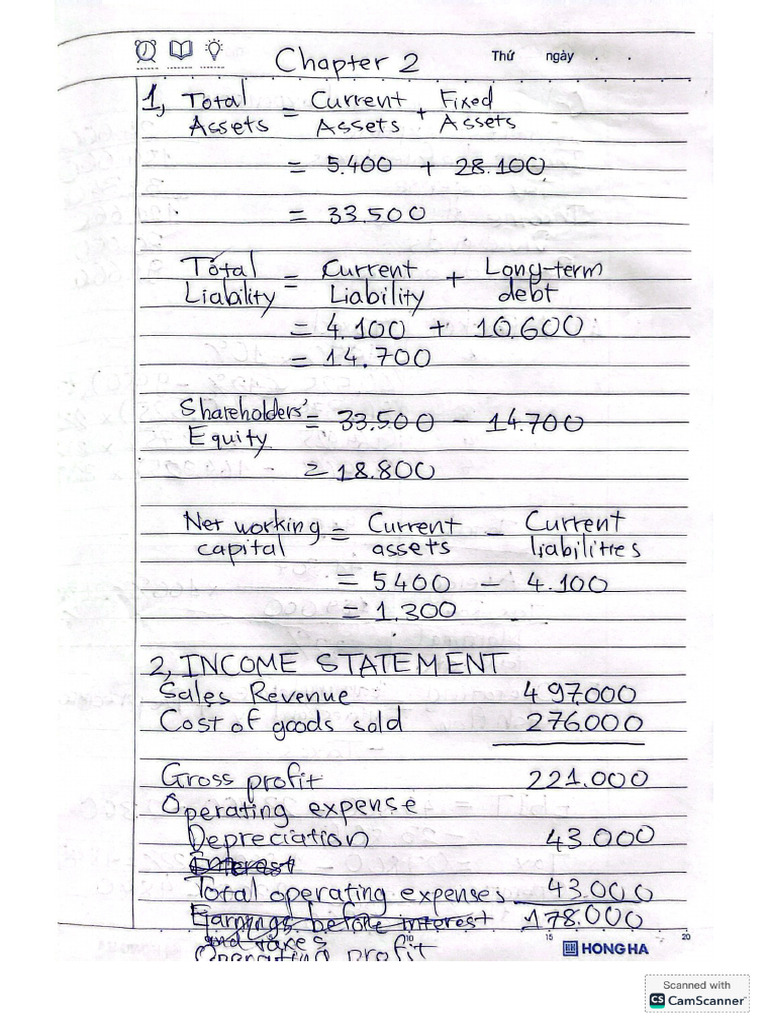 Chapter 2 Thứ ngày . .
1, Total Assets = Current Assets + Fixed Assets
= 5.400 + 28.100
= 33.500
Total Liability = Current Liability + Long-term debt
= 4.100 + 10.600
= 14.700
Shareholders' Equity = 33.500 - 14.700
= 18.800
Net working capital = Current assets - Current liabilities
= 5400 - 4.100
= 1.300
2, INCOME STATEMENT
Sales Revenue 497.000
Cost of goods sold 276.000
Gross profit 221.000
Operating expense
Depreciation 43.000
Interest
Total operating expenses 43.000
Earnings before interest 178.000
and taxes
Operating profit
10 15 20
HONG HA
Scanned with
CS CamScanner